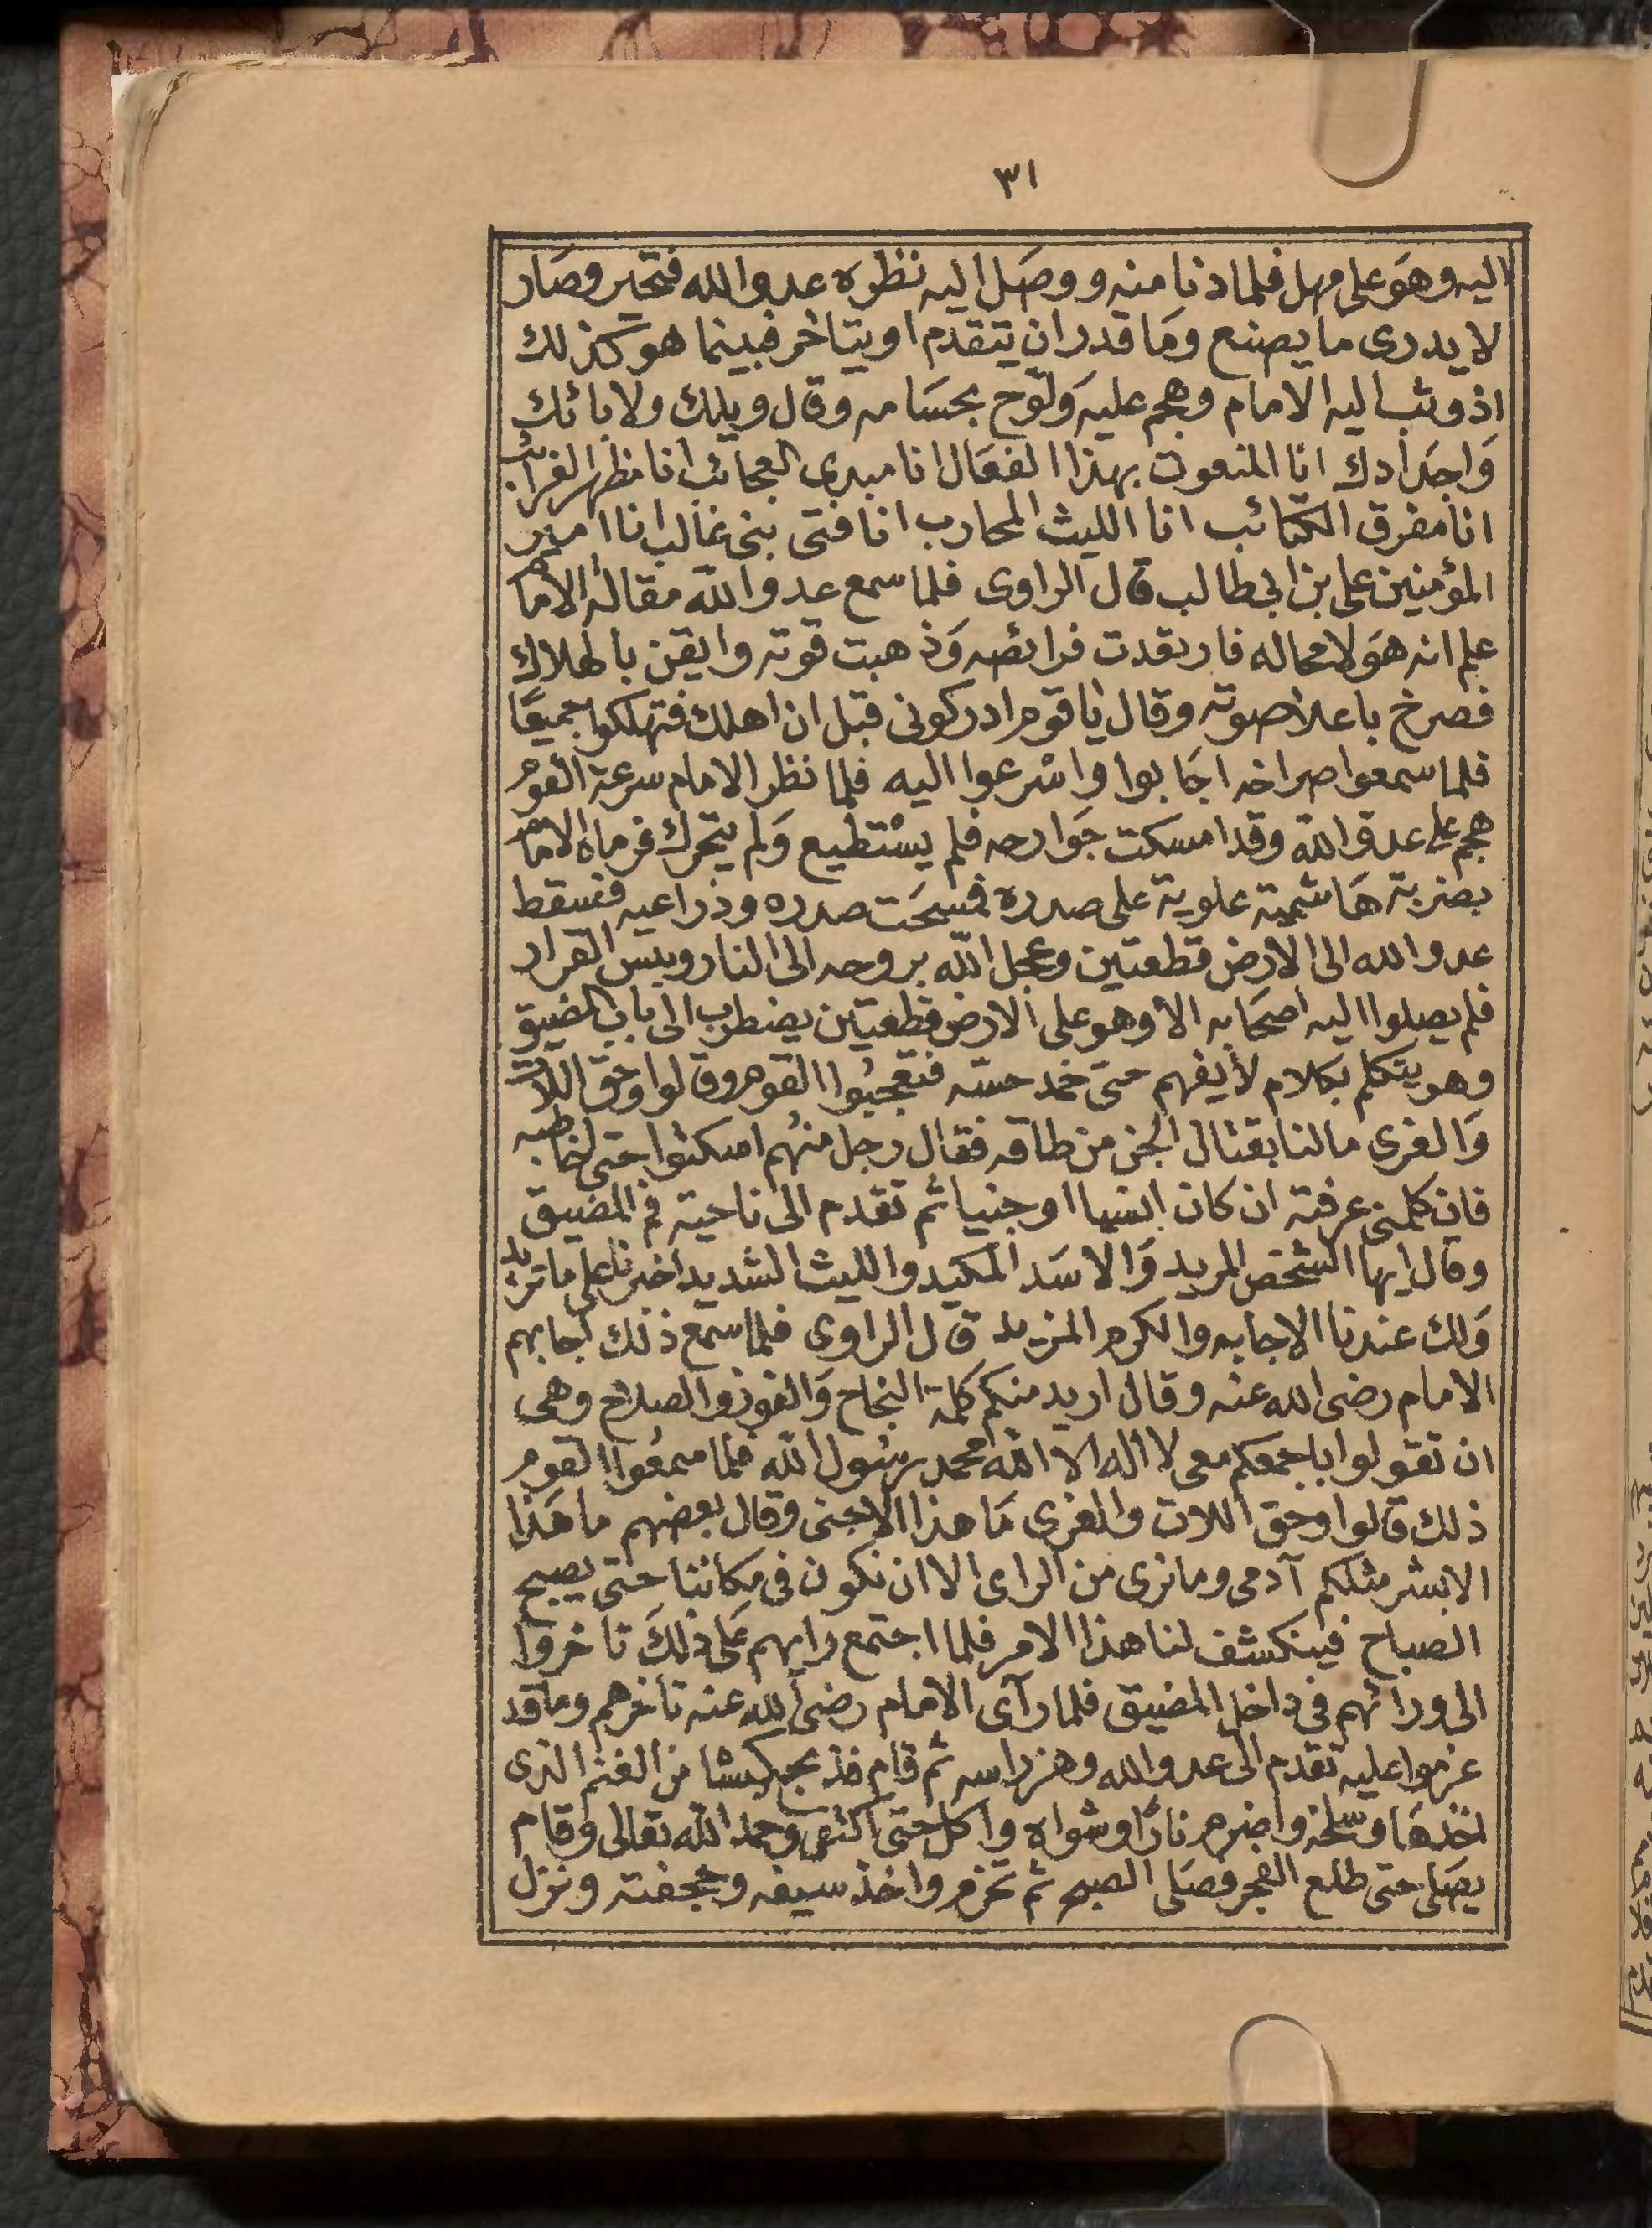 ٣١
اليه وهو على مهل فلما دنا منه ووصل اليه نظره عدو الله فتحير وصار
لا يدرى ما يصنع وما قدر ان يتقدم او يتاخر فبينما هو كذلك
اذ وثب اليه الامام وهجم عليه ولوّح بحسامه وقال ويلك ولابائك
واجدادك انا المنعوت بهذا الفعال انا مبدى العجائب انا مظهر الغرائب
انا مفرق الكتائب انا الليث المحارب انا فتى بنى غالب انا امير
المؤمنين على بن ابى طالب قال الراوى فلما سمع عدو الله مقالة الامام
علم انه هو لا محاله فارتعدت فرائصه وذهبت قوته وايقن بالهلاك
فصرخ باعلا صوته وقال يا قوم ادركونى قبل ان اهلك فتهلكوا جميعًا
فلما سمعوا صراخه اجابوا واسرعوا اليه فلما نظر الامام سرعة القوم
هجم على عدو الله وقد امسكت جوارحه فلم يستطيع ولم يتحرك فرماه الامام
بضربة هاشمية علوية على صدره فسحت صدره وذراعيه فسقط
عدو الله الى الارض قطعتين وعجل الله بروحه الى النار وبيس القرار
فلم يصلوا اليه اصحابه الا وهو على الارض قطعتين يضطرب الى باب المضيق
وهو يتكلم بكلام لا يفهم حتى خمد حسّه فتعجبُوا القوم وقالوا وحق اللات
والعزى مالنا بقتال الجن من طاقه فقال رجل منهُم امكثوا حتى اخاطبه
فان كلمنى عرفته ان كان انسيا او جنيا ثم تقدم الى ناحية فم المضيق
وقال ايها الشخص المريد والاسد المكيد والليث الشديد اخبرنا على ما تريد
ولك عندنا الاجابه والكرم المزيد قال الراوى فلما سمع ذلك اجابهم
الامام رضى الله عنه وقال اريد منكم كلمة النجاح والفوز والصلاح وهى
ان تقولوا باجمعكم معى لا اله الا الله محمد رسول الله فلما سمعُوا القوم
ذلك قالوا وحق اللات والعزى ما هذا الا جنى وقال بعضهم ما هذا
الا بشر مثلكم آدمى وما نرى من الراى الا ان نكون فى مكاننا حتى يصبح
الصباح فينكشف لنا هذا الامر فلما اجتمع رايهم على ذلك تاخروا
الى ورائهم فى داخل المضيق فلما رآى الامام رضى الله عنه تاخرهم وما قد
عزموا عليه تقدم الى عدو الله وهز راسه ثم قام فذبح كبشا من الغنم الذى
اخذها وسلخه واضرم نارًا وشواه واكل حتى اكتفى وحمد الله تعالى وقام
يصلى حتى طلع الفجر وصلى الصبح ثم تحزم واخذ سيفه وحجفته ونزل